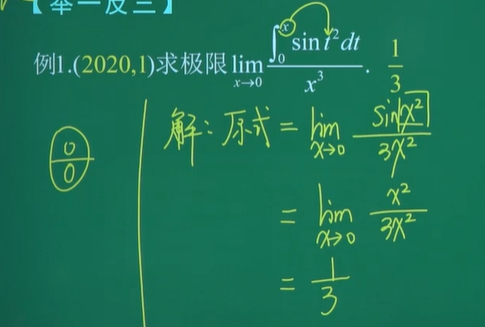 【举一反三】
例1.(2020,1)求极限 lim x→0 ∫₀ˣ sin t² dt / x³ . 1/3
0/0
解:原式 = lim x→0 sin x² / 3x²
= lim x→0 x² / 3x²
= 1/3